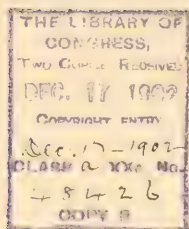 THE LIBRARY OF
CONGRESS,
TWO COPIES RECEIVED
DEC. 17 1902
COPYRIGHT ENTRY
Dec. 17-1902
CLASS a XXc. No.
48426
COPY B